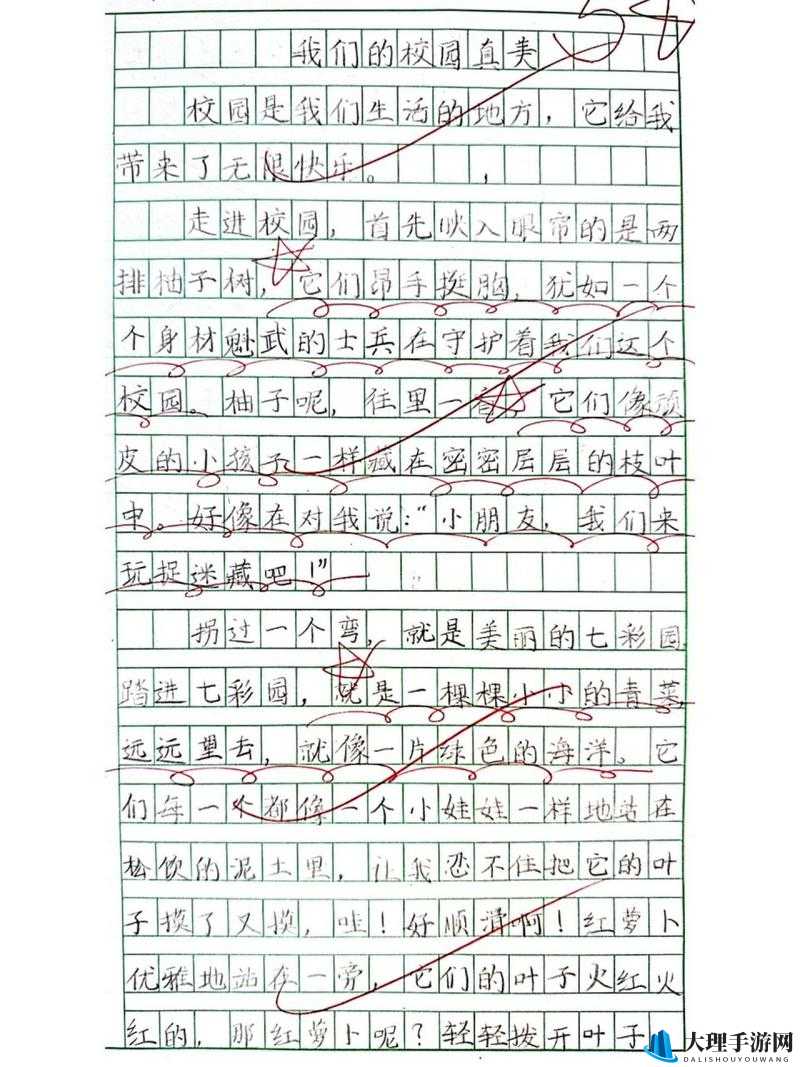 我们的校园真美
校园是我们生活的地方，它给我
带来了无限快乐。
走进校园，首先映入眼帘的是两
排柚子树，它们昂手挺胸，犹如一个
个身材魁武的士兵在守护着我们这个
校园。柚子呢，往里一看，它们像顽
皮的小孩子一样藏在密密层层的枝叶
中。好像在对我说：“小朋友，我们来
玩捉迷藏吧！”
拐过一个弯，就是美丽的七彩园
踏进七彩园，就是一棵棵小小的青菜，
远远望去，就像一片绿色的海洋。它
们每一个都像一个小娃娃一样地站在
松饮的泥土里，让我忍不住把它的叶
子摸了又摸，哇！好顺滑啊！红萝卜
优雅地站在一旁，它们的叶子火红火
红的，那红萝卜呢？轻轻拨开叶子
大理手游网
DALISHOUYOUWANG